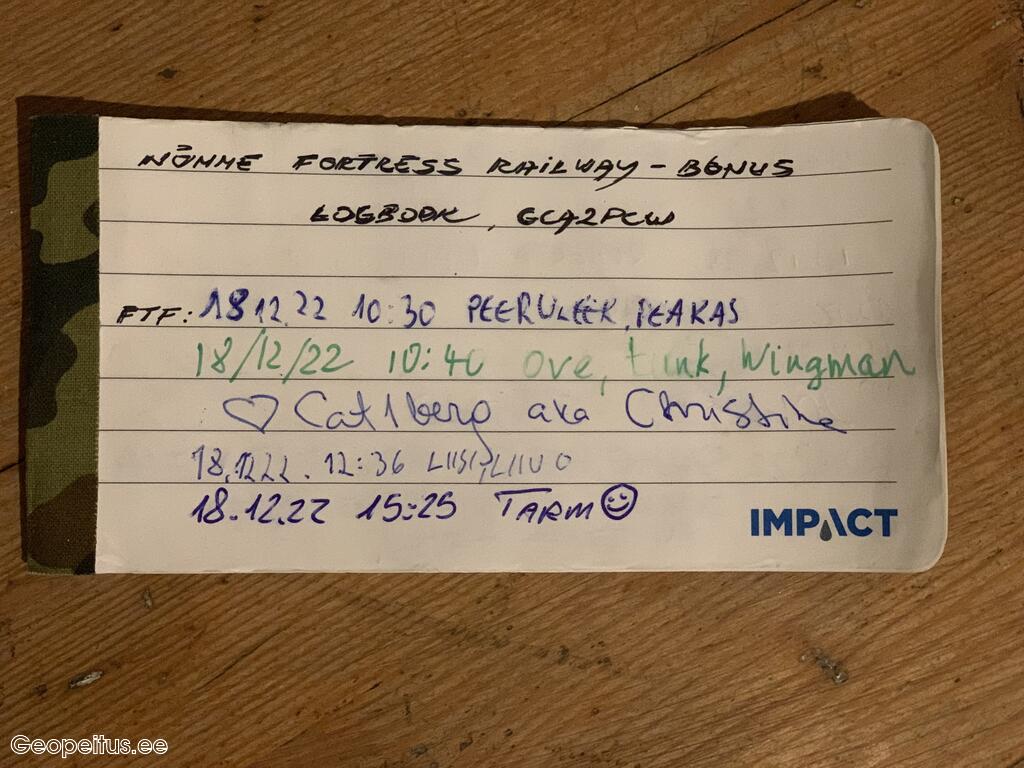 NÕMME FORTRESS RAILWAY - BONUS
LOGBOOK, GCA2PCW
FTF: 18 12.22 10:30 PEERULEEK, PEAKAS
18/12/22 10:40 Ove, Wingman
♡ Cat1berg aka Christina
18.12.22. 12:36 LIISI, LIIVO
18.12.22 15:25 TARMO
IMPACT
Geopeitus.ee